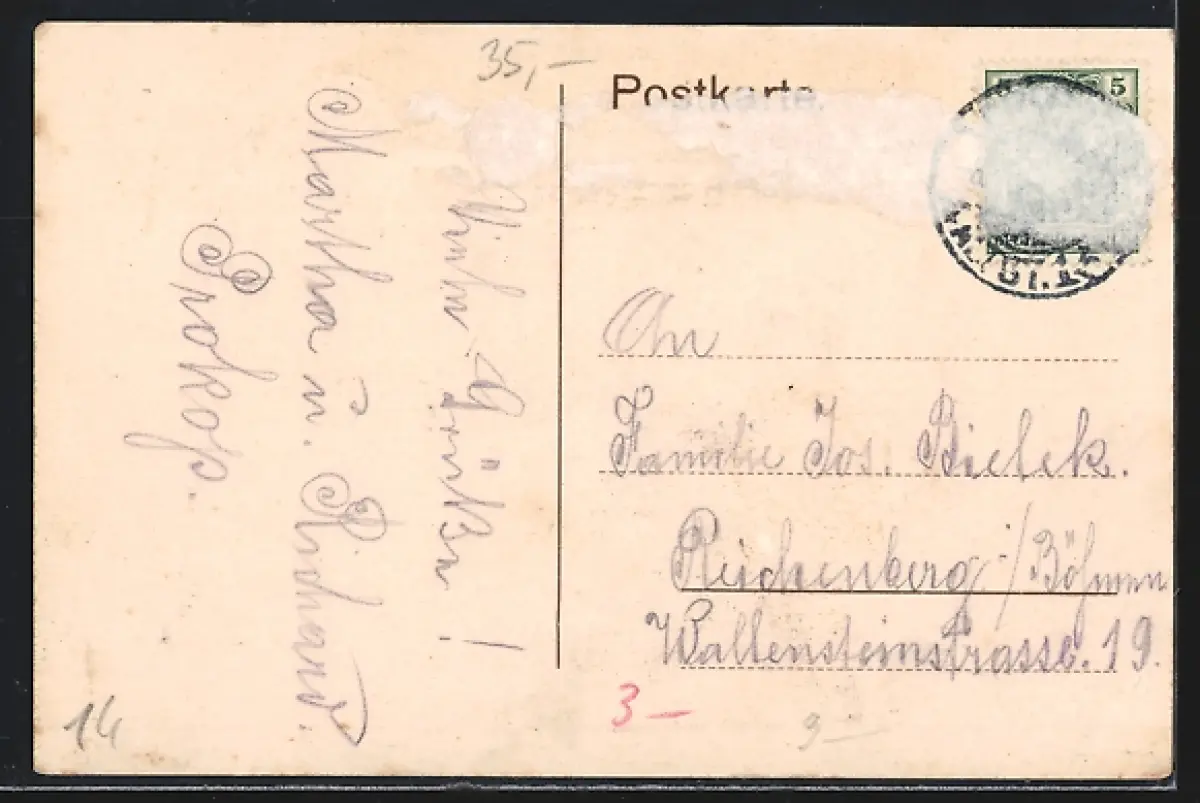 35,-
Postkarte.
5
Viele Grüße!
Martha u. Richard
Prokop.
An
Familie Jos. Bielek.
Reichenberg i/Böhmen
Wallensteinstrasse. 19.
14
3 –
9 –